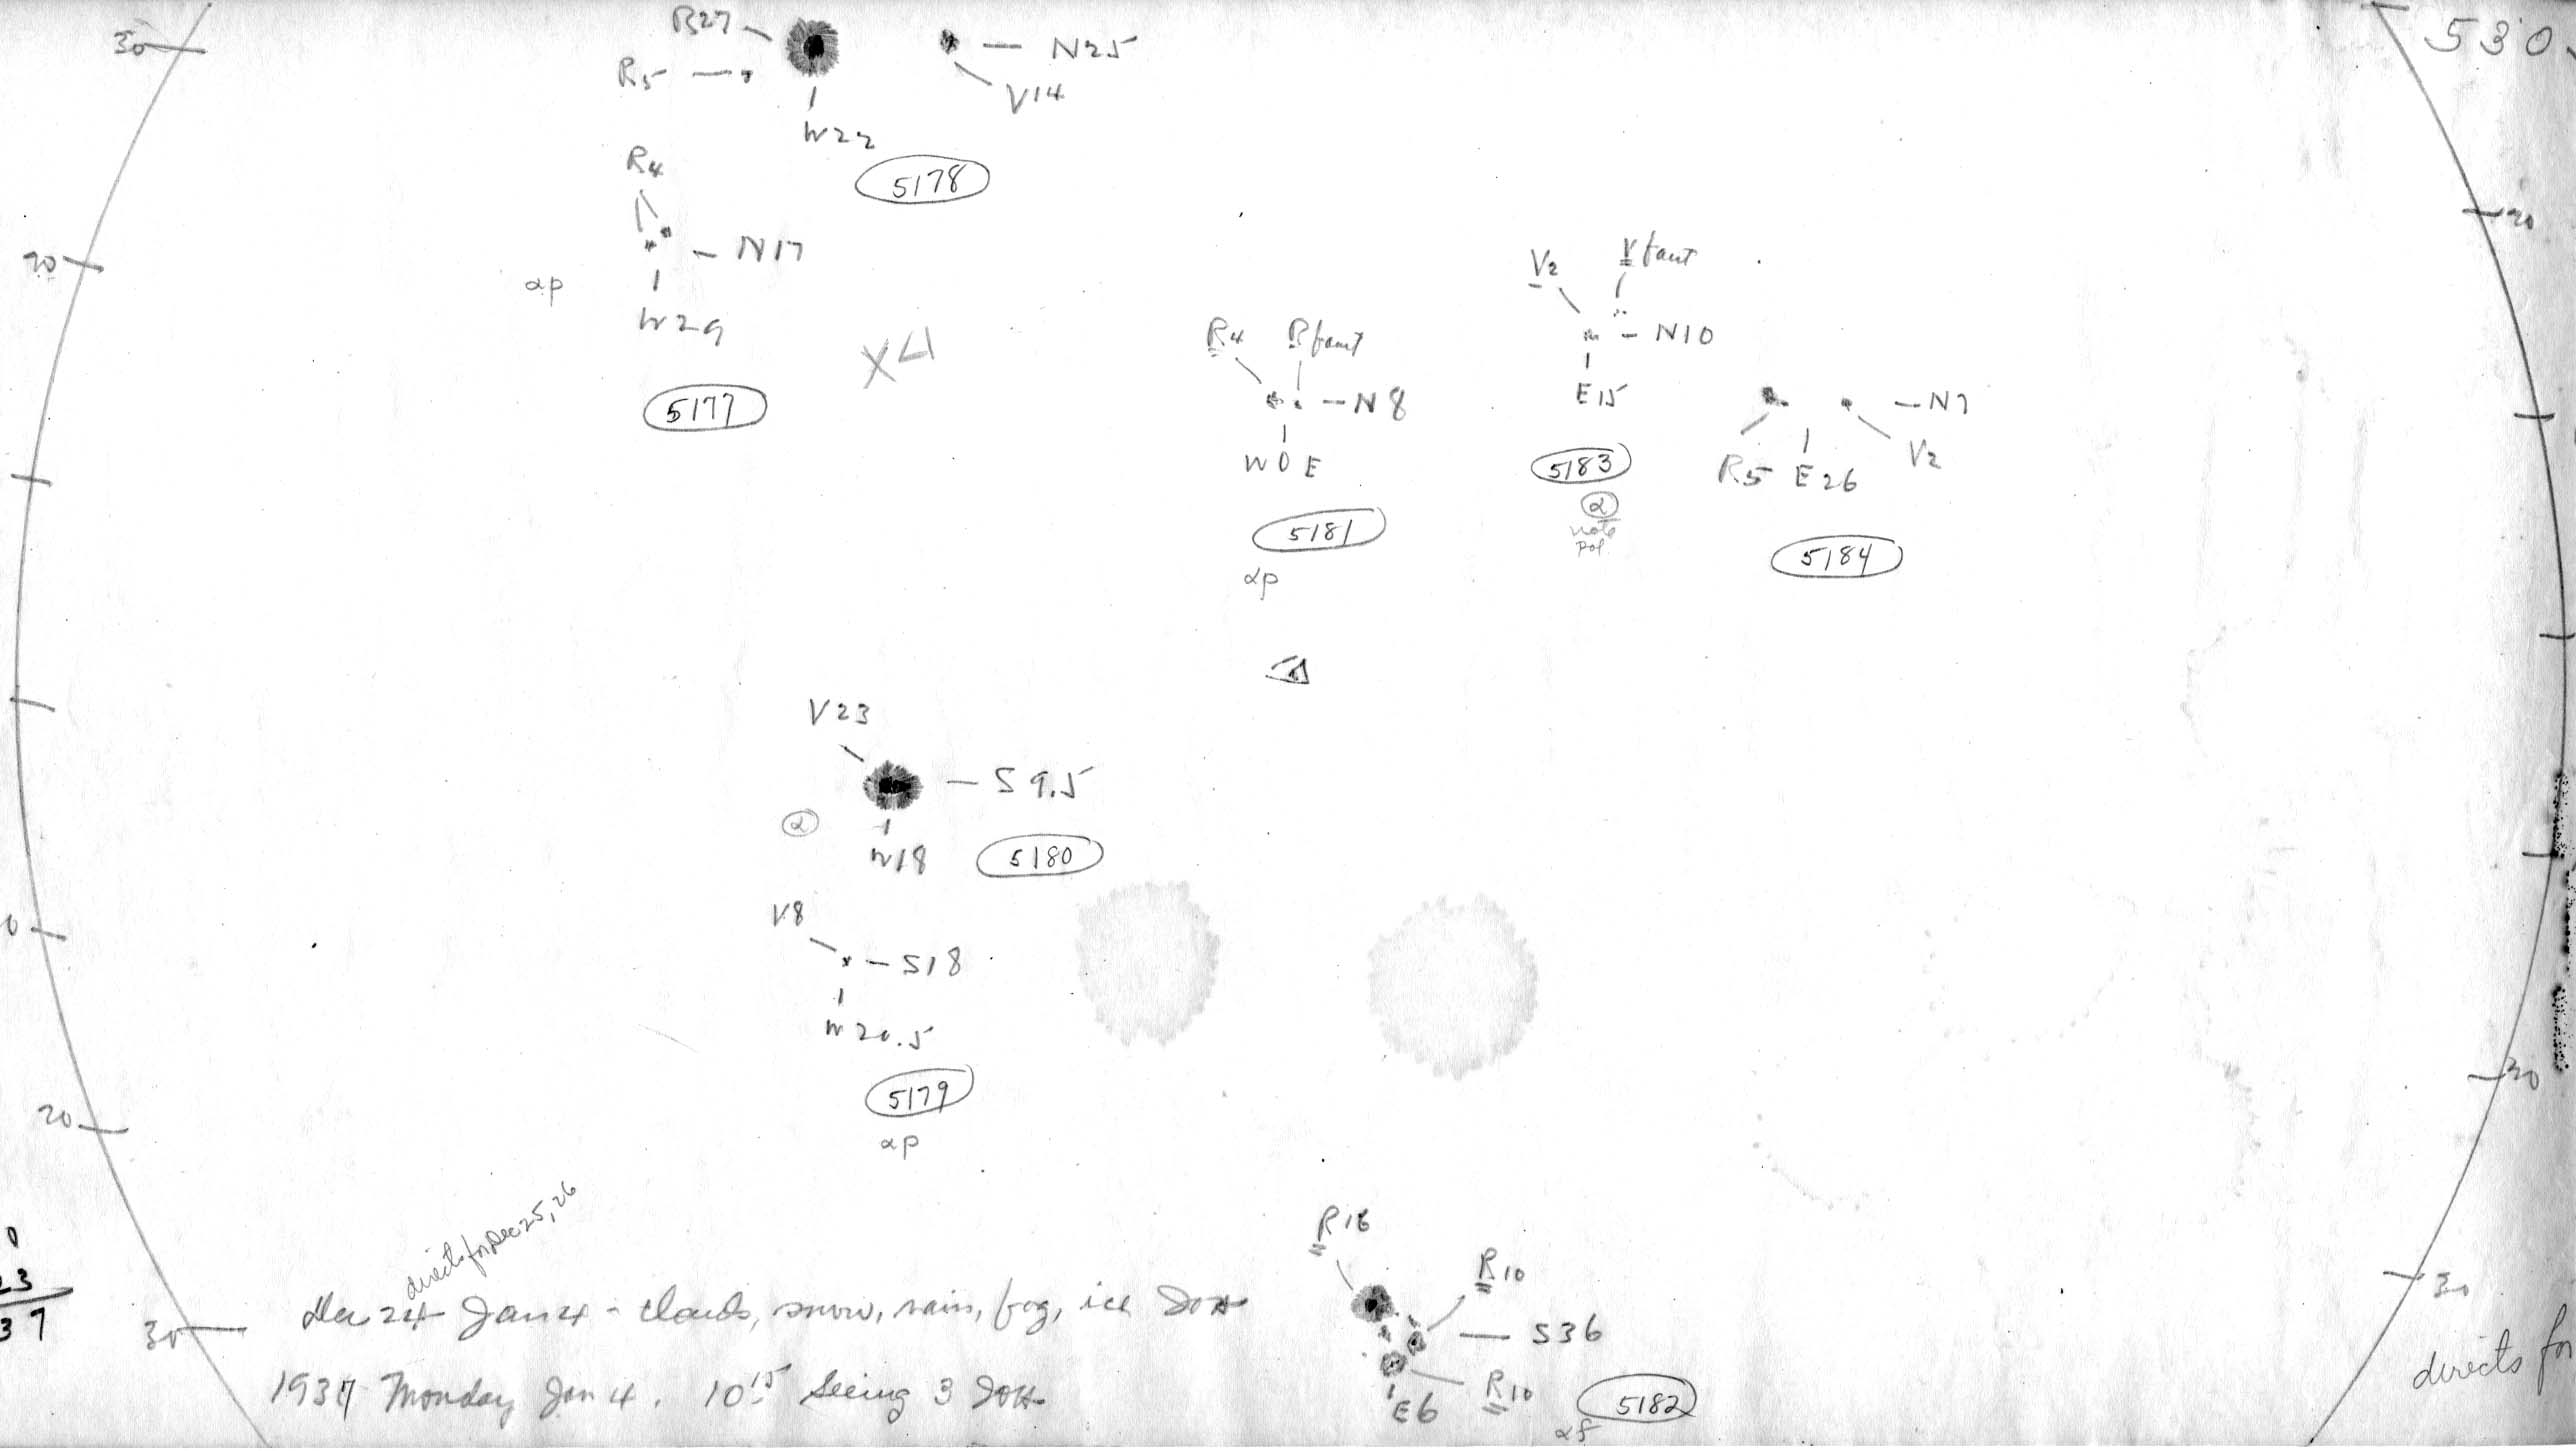 30
R27
N25
530
R5
V14
W22
R4
5178
20
N17
20
αp
W29
V2
V faint
X4
R4
R faint
N10
5177
N8
E15
N7
W 0 E
5183
R5
E26
V2
α
note
pol.
5181
5184
αp
V23
S9.5
α
W18
5180
V8
S18
W20.5
20
5179
αp
20
directs for Dec 25, 26
R16
R10
Dec 24 Jan 4 - clouds, snow, rain, fog, ice
30
30
S36
directs for
1937 Monday Jan 4. 10 15 Seeing 3
R10
E6
5182
αf